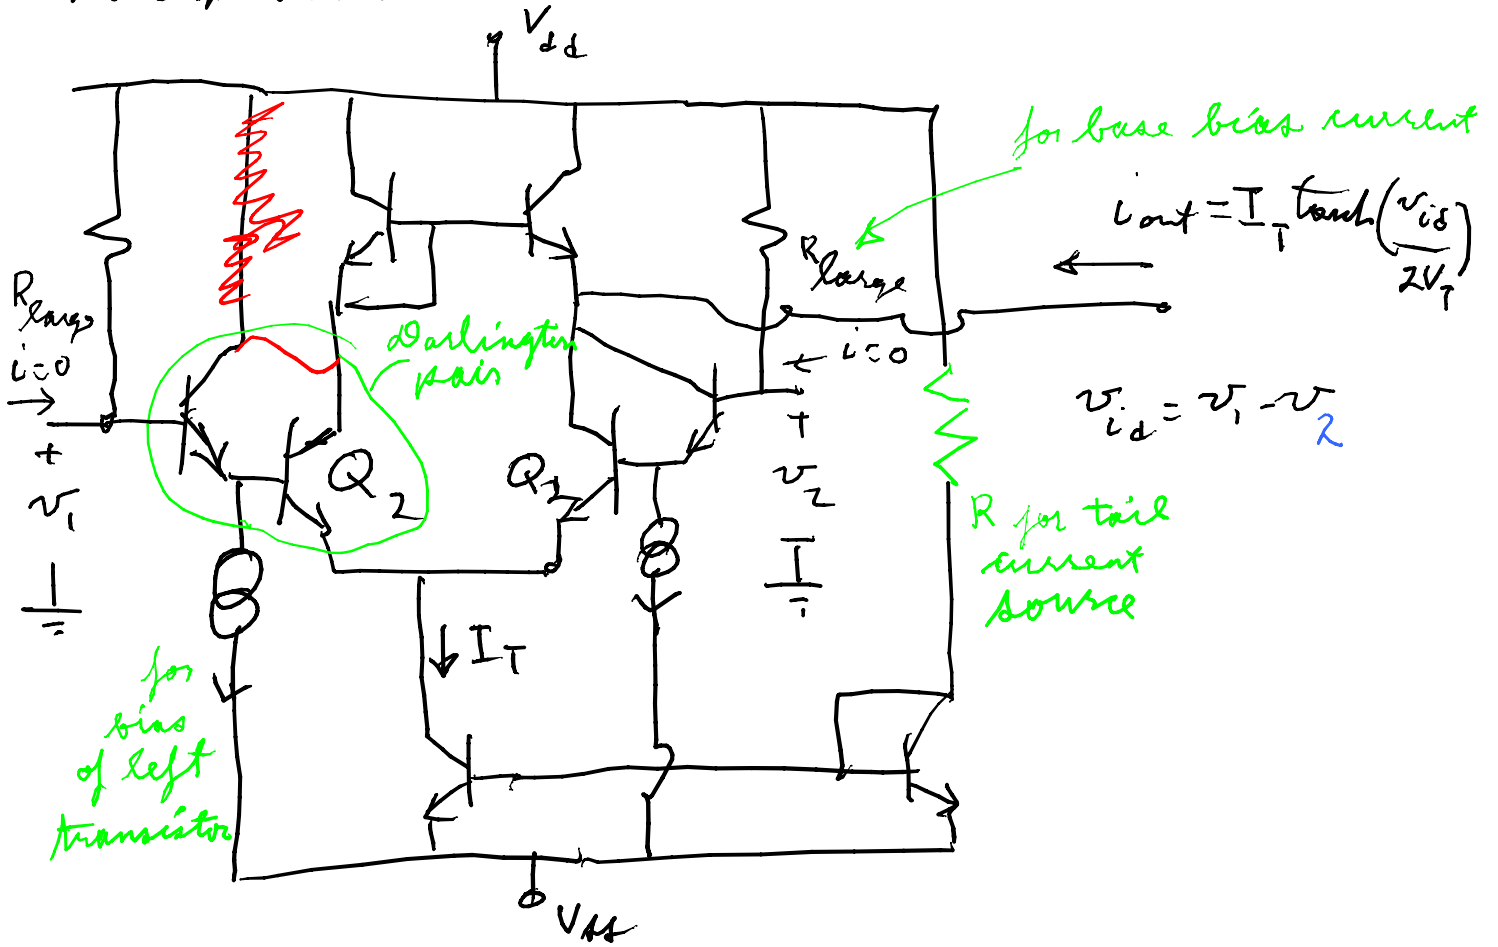 V_dd
for base bias current
i_out = I_T tanh(v_id / 2V_T)
R_large
i=0
R_large
i=0
Darlington
pair
v_id = v_1 - v_2
+
v_1
Q_2
Q_1
+
v_2
R for tail
current
source
I_T
for
bias
of left
transistor
V_ss